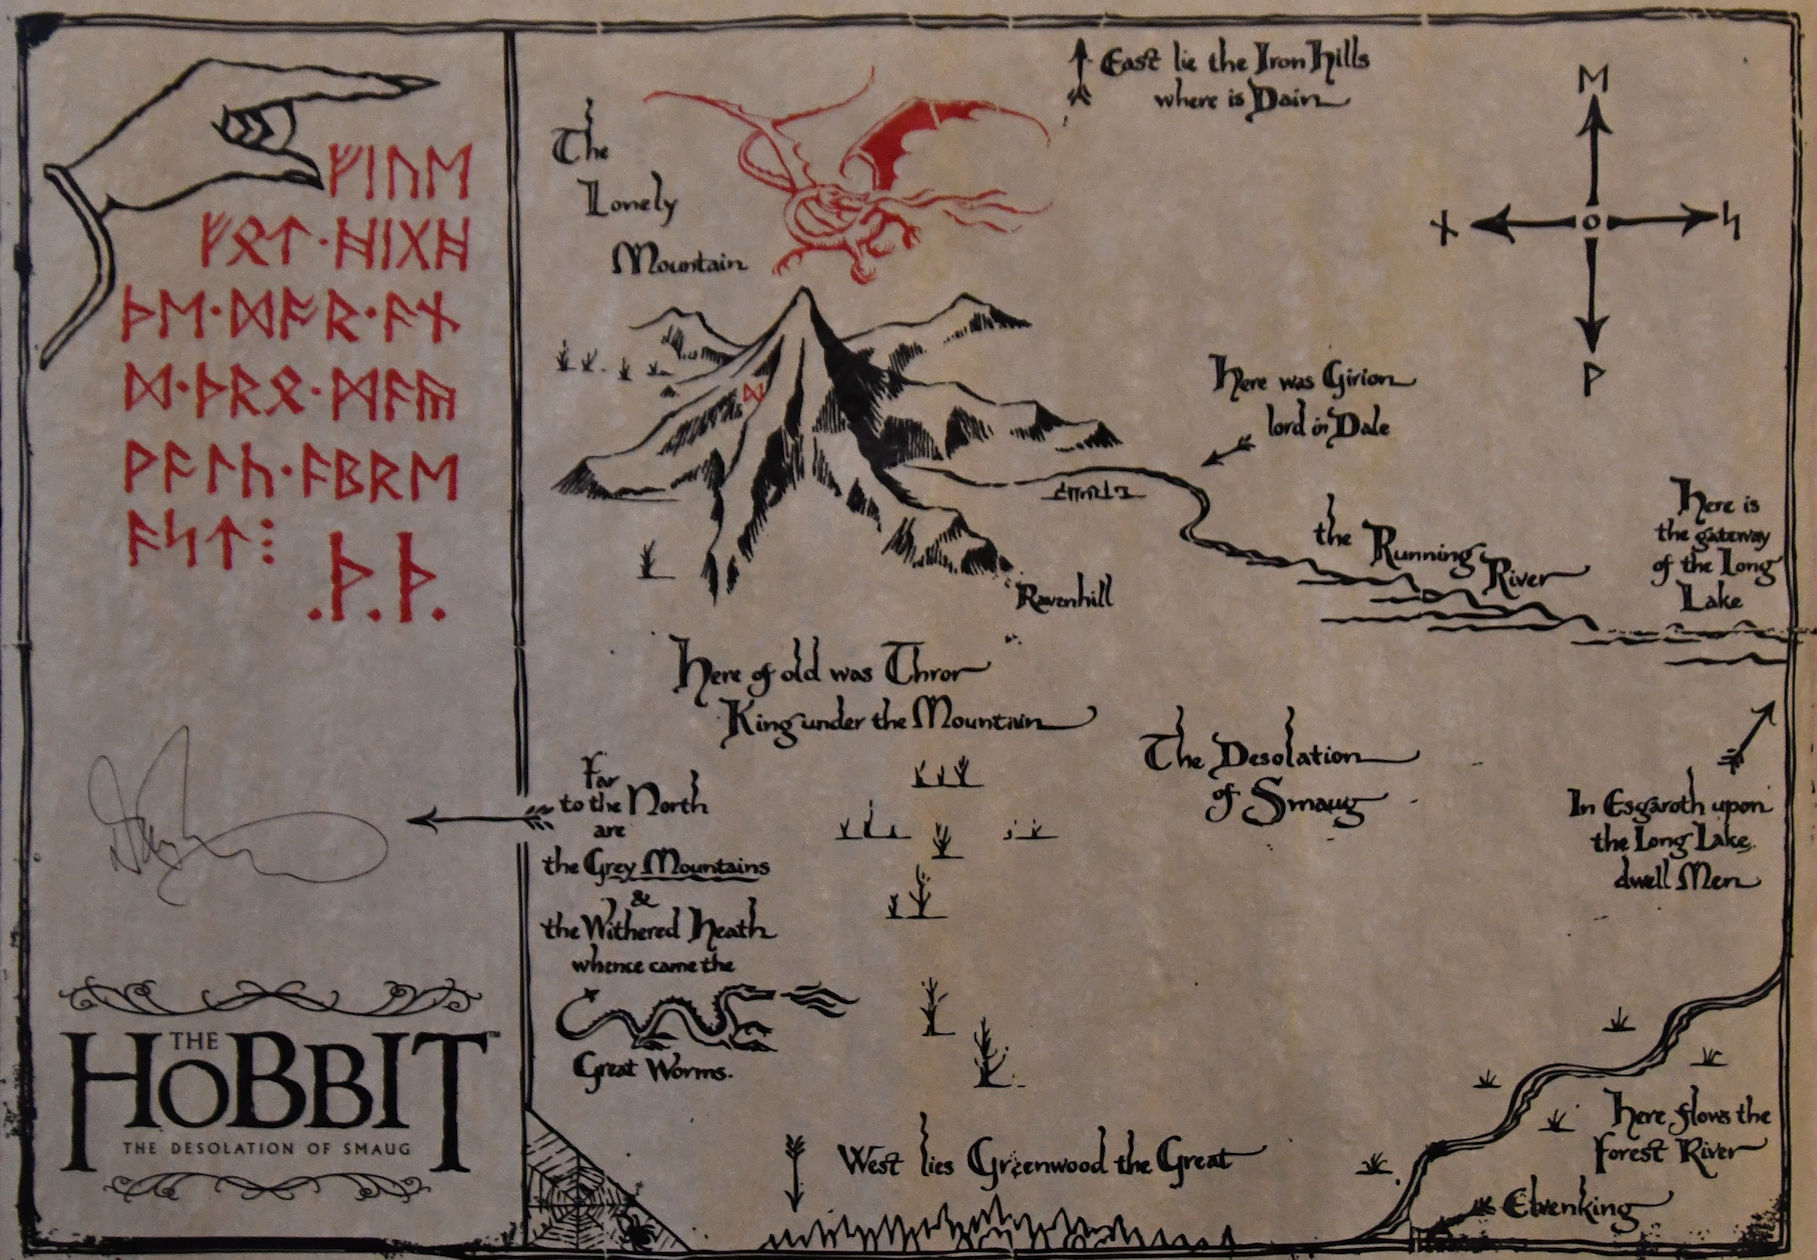 ᚠᛁᚢᛖ
ᚠᛟᛏ·ᚻᛁᚷᚻ
ᚦᛖ·ᛞᚩᚱ·ᚪᚾ
ᛞ·ᚦᚱᛟ·ᛗᚪᚣ
ᚹᚪᛚᚳ·ᚪᛒᚱᛖ
ᚪᛋᛏ⁝
.ᚦ.ᚦ.
THE
HOBBIT™
THE DESOLATION OF SMAUG
East lie the Iron Hills
where is Dain
The
Lonely
Mountain
ᛖ
ᚾ ᛋ
ᚹ
ᛞ
Here was Girion
lord in Dale
the Running River
Here is
the gateway
of the Long
Lake
Ravenhill
Here of old was Thror
King under the Mountain
The Desolation
of Smaug
Far
to the North
are
the Grey Mountains
&
the Withered Heath
whence came the
Great Worms.
In Esgaroth upon
the Long Lake
dwell Men
West lies Greenwood the Great
Here flows the
Forest River
Elvenking